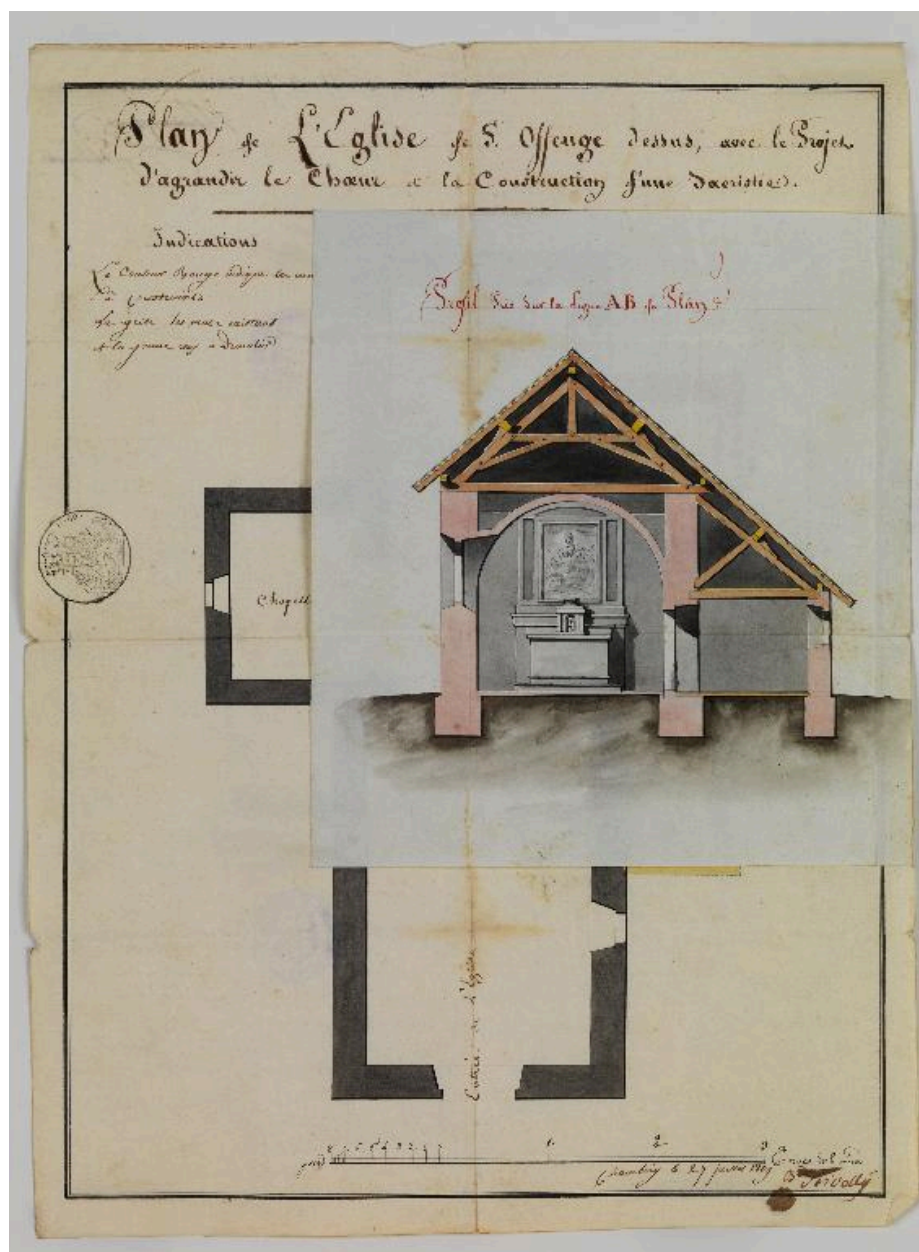 Plan de L'Eglise de St. Offenge dessus, avec le Projet
d'agrandir le Chœur et la Construction d'une Sacristie.
Indications
La Couleur Rouge indique les
à construire
Le gris les murs existant
et la jaune ceux a Démolir
Profil Pris Sur la Ligne AB du Plan
Chapell
Entrée de l'Eglise
1 2 3
Chambéry le 27